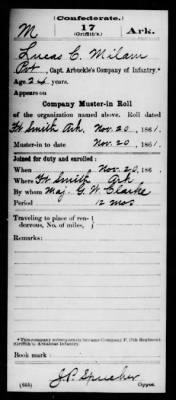 (Confederate.)
M 17 Ark.
(Griffith's).
Lucas C. Milam
Pvt, Capt. Arbuckle's Company of Infantry.*
Age 24 years.
Appears on
Company Muster-in Roll
of the organization named above. Roll dated
Ft Smith Ark, Nov. 20, 1861.
Muster-in to date Nov. 20, 1861.
Joined for duty and enrolled:
When Nov. 20, 1861.
Where Ft Smith Ark
By whom Maj. G. W. Clarke
Period 12 mos
Traveling to place of ren-
dezvous, No. of miles,
Remarks:
*This company subsequently became Company F, 17th Regiment
(Griffith's), Arkansas Infantry.
Book mark:
(655) Copyist.